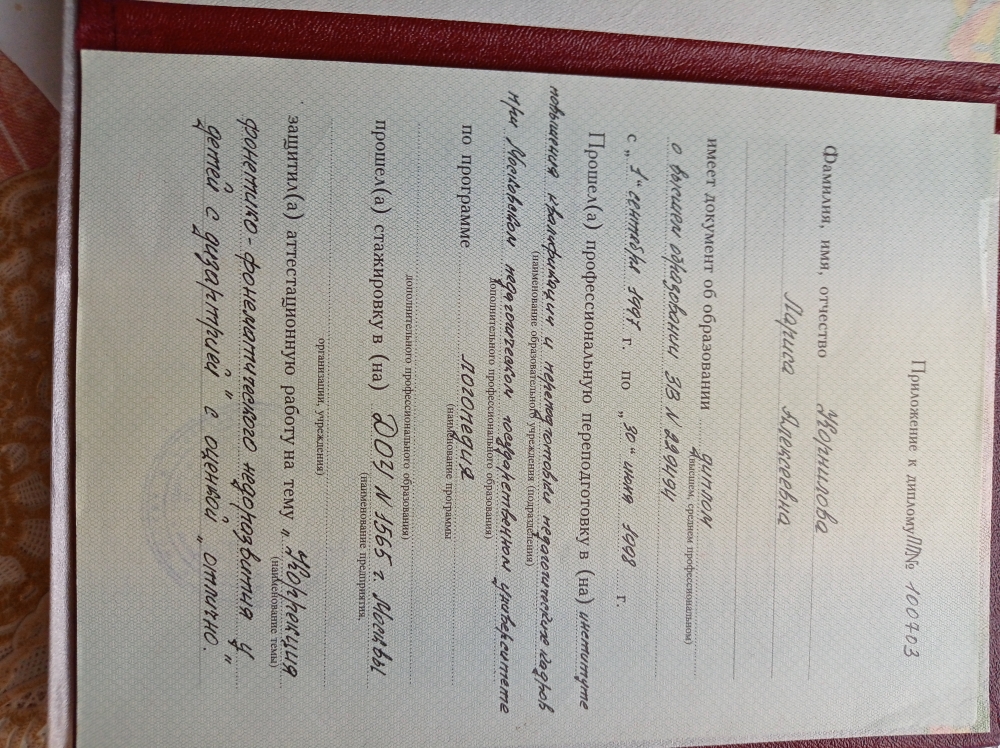 Приложение к диплому ПП№ 100703
Фамилия, имя, отчество Корнилова
Лариса Алексеевна
имеет документ об образовании диплом
(высшем, среднем профессиональном)
о высшем образовании ЗВ N 229494
с „1“ сентября 1997 г. по „30“ июня 1998 г.
Прошел(а) профессиональную переподготовку в (на) институте
(наименование образовательного учреждения (подразделения)
повышения квалификации и переподготовки педагогических кадров
дополнительного профессионального образования)
при Московском педагогическом государственном университете
по программе Логопедия
(наименование программы
дополнительного профессионального образования)
прошел(а) стажировку в (на) ДОУ N 1565 г. Москвы
(наименование предприятия,
организации, учреждения)
защитил(а) аттестационную работу на тему „Коррекция
(наименование темы)
фонетико-фонематического недоразвития у
детей с дизартрией" с оценкой „отлично.“